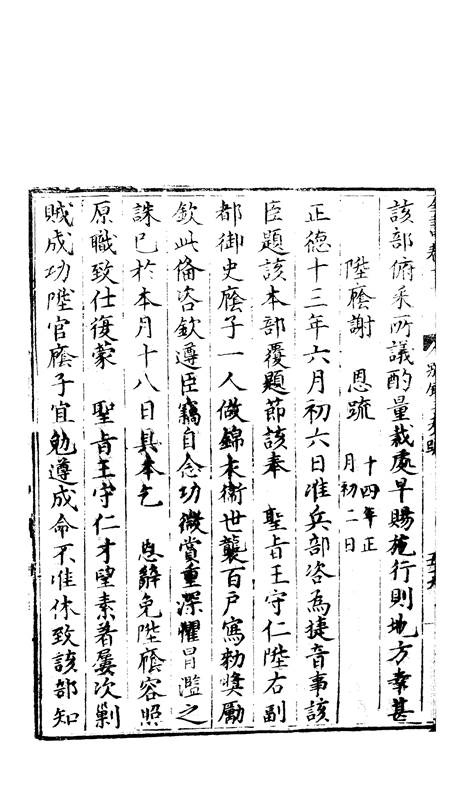 該部俯采所議酌量裁處早賜施行則地方幸甚
陞廕謝 恩疏 十四年正月初二日
正德十三年六月初六日准兵部咨為捷音事該
臣題該本部覆題節該奉 聖旨王守仁陞右副
都御史廕子一人做錦衣衛世襲百户寫勑奬勵
欽此備咨欽遵臣竊自念功微賞重深懼冐濫之
誅已於本月十八日具本乞 恩辭免陞廕容照
原職致仕復蒙 聖旨王守仁才望素著屡次剿
賊成功陞官廕子宜勉遵成命不准休致該部知